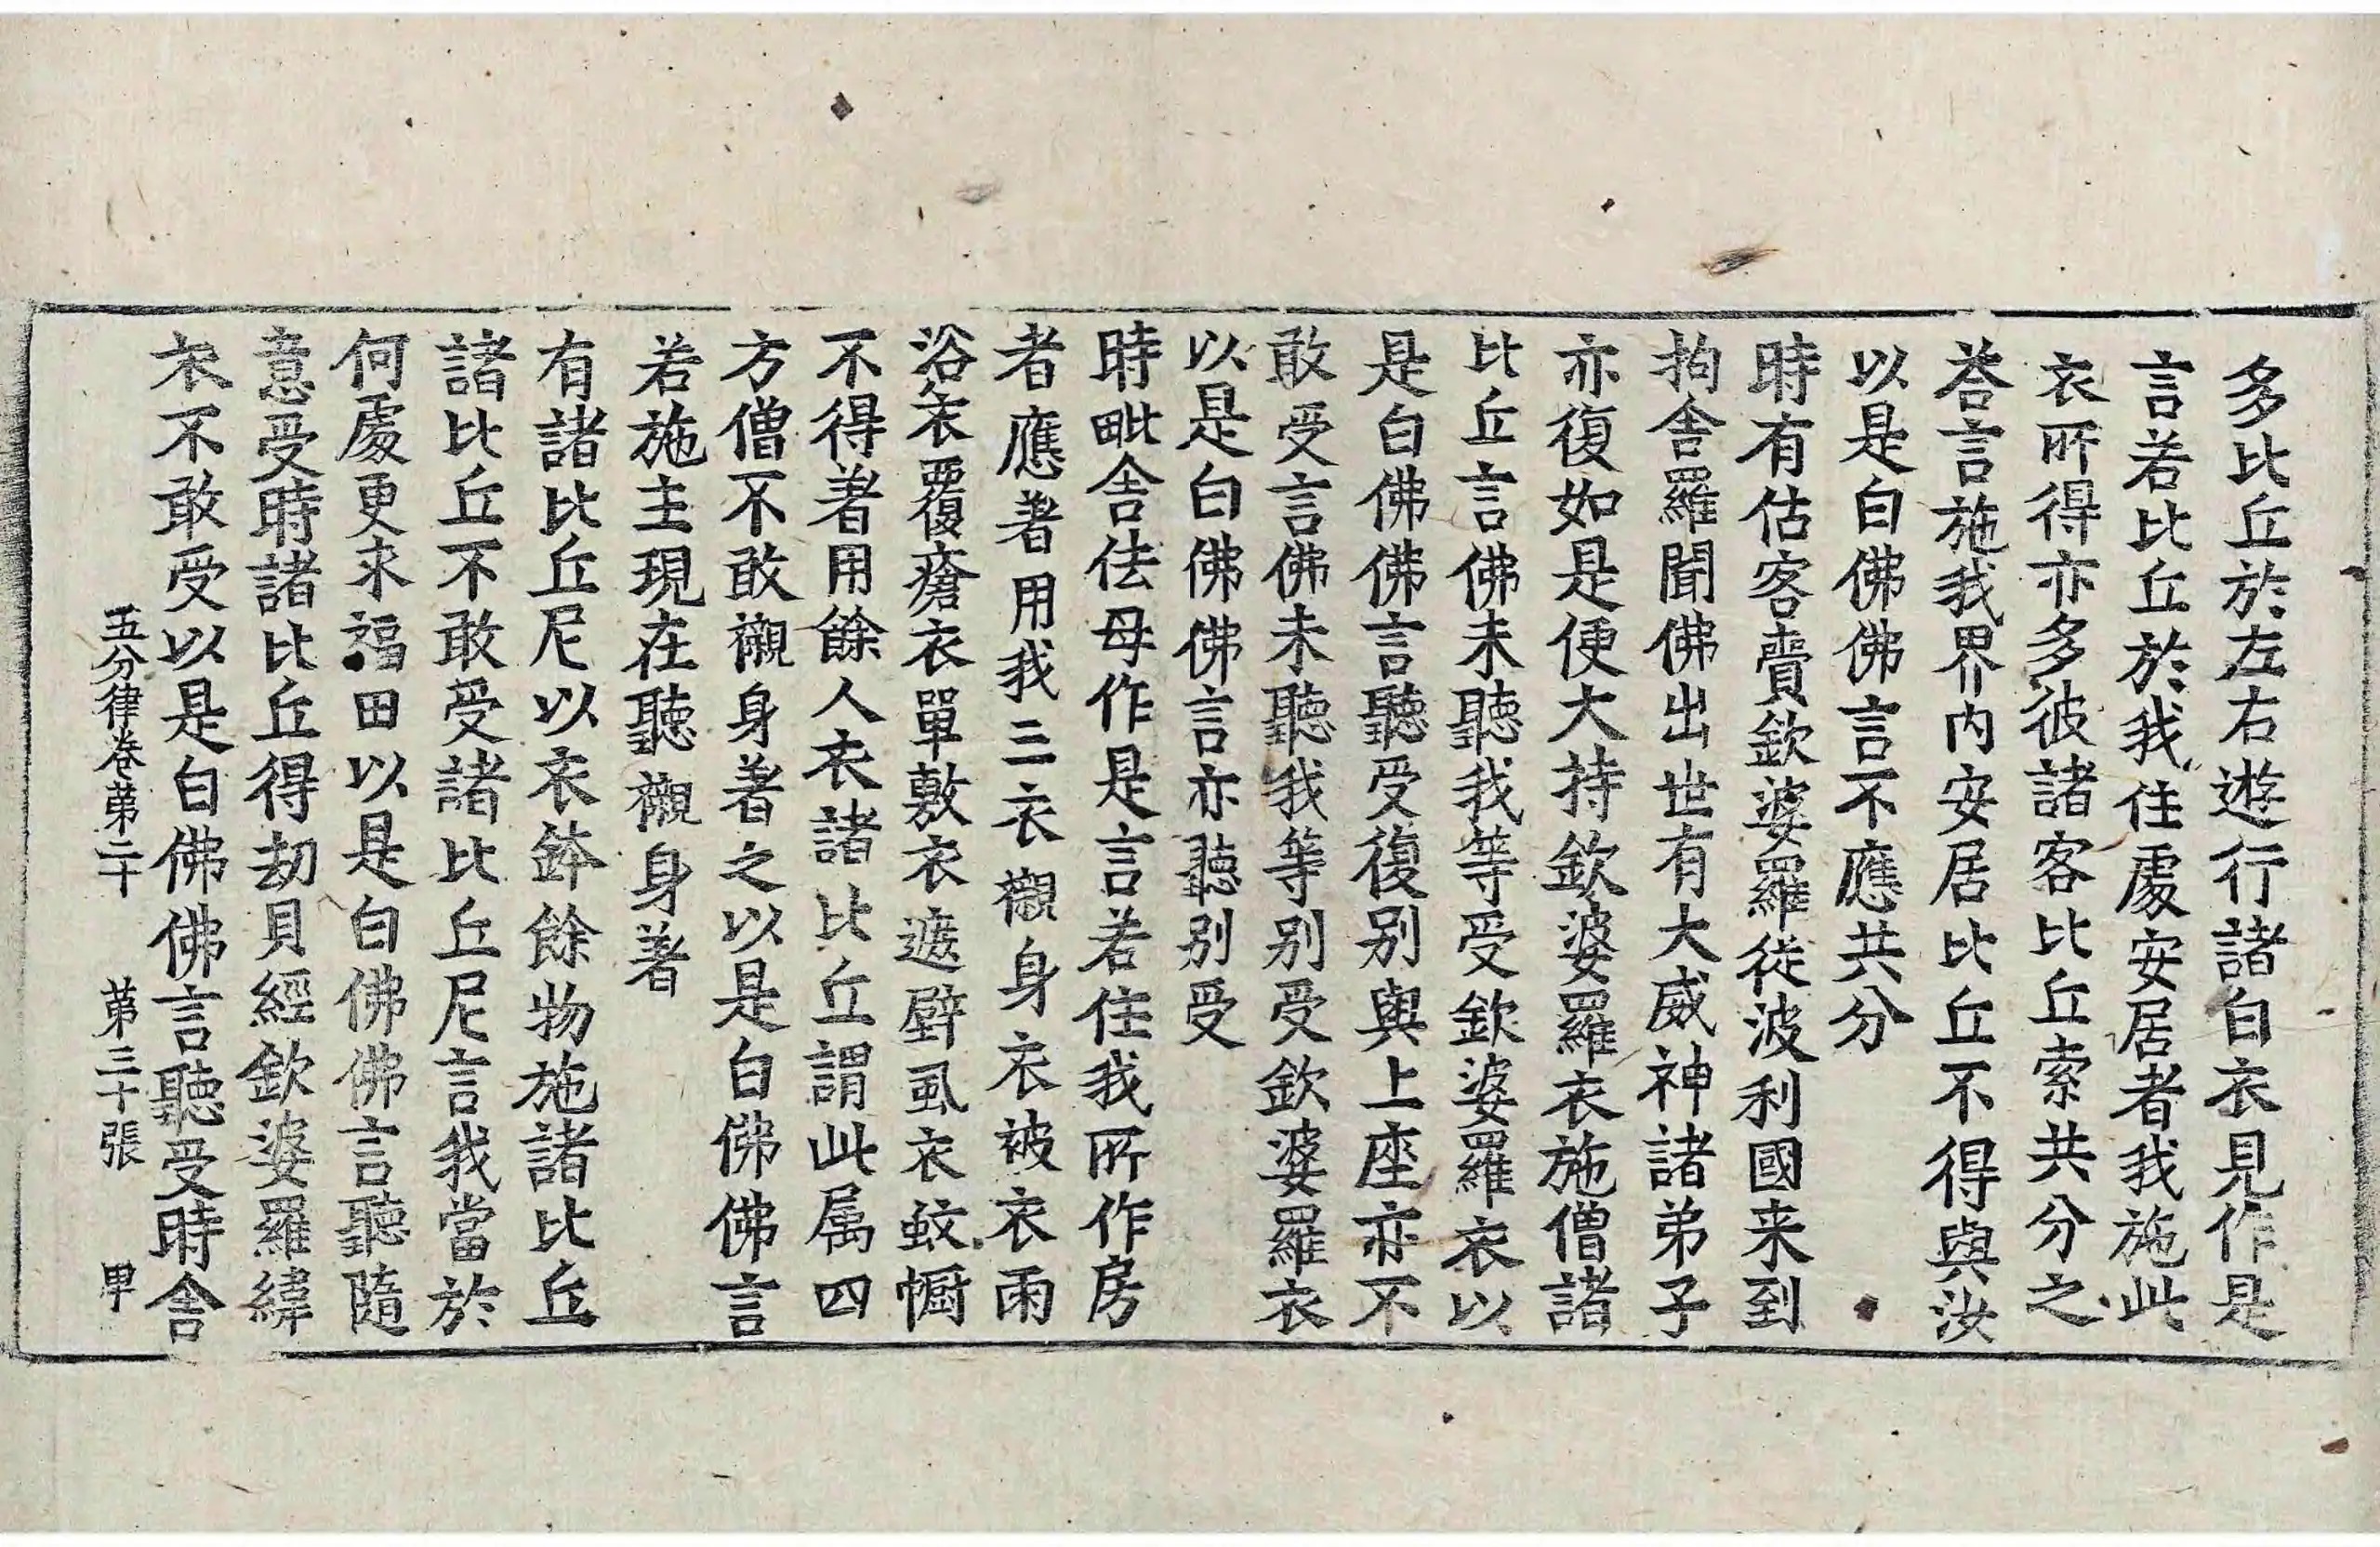 多比丘於左右遊行諸白衣見作是
言若比丘於我住處安居者我施此
衣所得亦多彼諸客比丘索共分之
荅言施我界内安居比丘不得與汝
以是白佛佛言不應共分
時有估客賷欽婆羅從波利國来到
拘舍羅聞佛出世有大威神諸弟子
亦復如是便大持欽婆羅衣施僧諸
比丘言佛未聽我等受欽婆羅衣以
是白佛佛言聽受復别與上座亦不
敢受言佛未聽我等别受欽婆羅衣
以是白佛佛言亦聽别受
時毗舍佉母作是言若住我所作房
者應著用我三衣襯身衣被衣雨
浴衣覆瘡衣單敷衣遮壁虱衣蚊㡡
不得著用餘人衣諸比丘謂此属四
方僧不敢襯身著之以是白佛佛言
若施主現在聽襯身著
有諸比丘尼以衣鉢餘物施諸比丘
諸比丘不敢受諸比丘尼言我當於
何處更求福田以是白佛佛言聽隨
意受時諸比丘得劫貝經欽婆羅緯
衣不敢受以是白佛佛言聽受時舍
五分律卷第二十 第三十張 甲